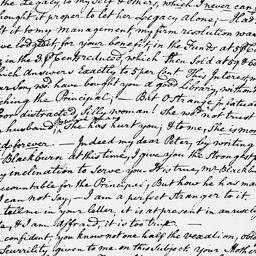 the Legacy to my Self & others, which I never can
thought it proper to let her Legacy alone; Had
left it to my management my firm resolution was
have lodged it for your benefit, in the Funds at 59
in the 3 P Cent reduced, which then Sold at 59 & 60
which answers exactly to 5 per Cent This Interest
Son, we have bought you a good Library, without
touching the Principal; — But O Strange
poor distracted, Silly woman! She wou'd not trust
husband; She has hurt you; & to me, She is
for ever. — Indeed my dear Peter, by writing
Blackburn at this time, I give you the Strongest
my inclination to Serve you. It is true, Mr Blackburn
accountable for the Principal, But how he has
I can not Say, — I am a perfect Stranger to it.
tell me in your letter, it is at present in
& I am affraid, it is too true. —
confident, you know not one half the vexation,
Scurrility, given to me on this Subject. Your Mother